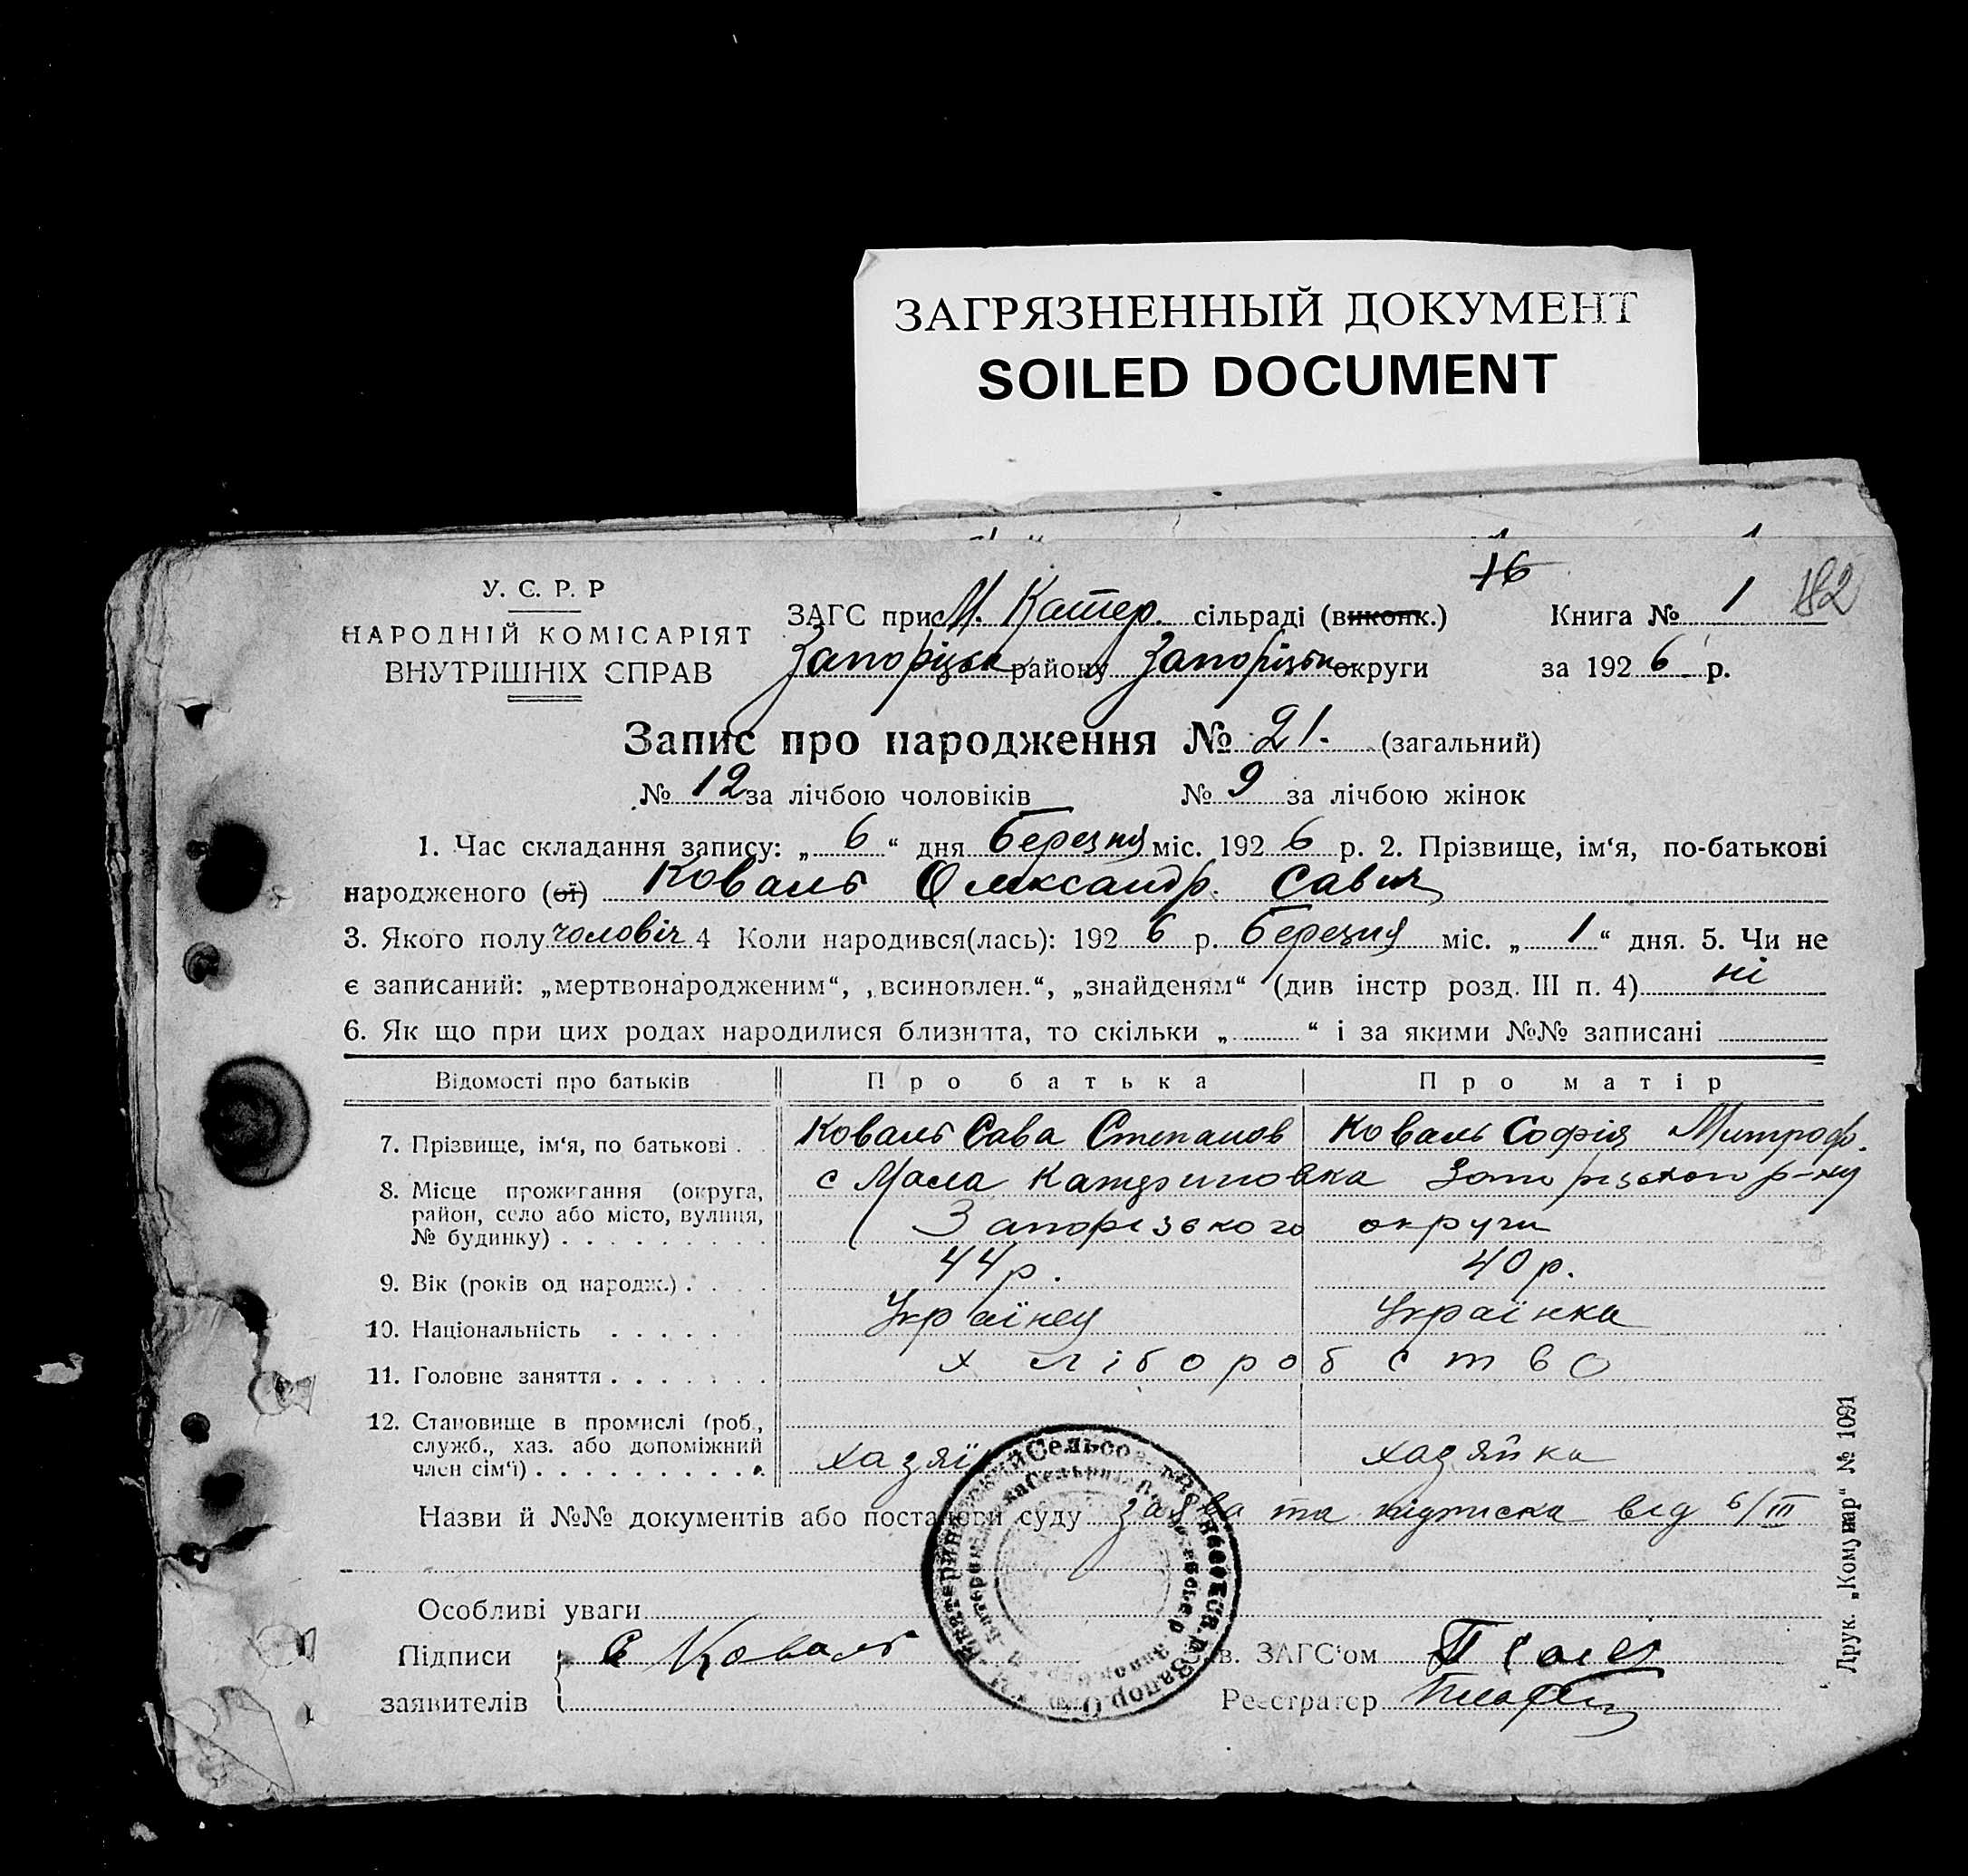 ЗАГРЯЗНЕННЫЙ ДОКУМЕНТ
SOILED DOCUMENT
16
У. С. Р. Р
НАРОДНІЙ КОМІСАРІЯТ
ВНУТРІШНІХ СПРАВ
ЗАГС при М. Катер. сільраді (виконк.)
Книга № 1 182
Запорізьк району Запорізьк округи
за 1926 р.
Запис про народження № 21. (загальний)
№ 12 за лічбою чоловіків № 9 за лічбою жінок
1. Час складання запису: „6“ дня березня міс. 1926 р. 2. Прізвище, ім‘я, по-батькові
народженого (ої) Коваль Олександр Савич
3. Якого полу чоловіч 4 Коли народився(лась): 1926 р. березня міс. „1“ дня. 5. Чи не
є записаний: „мертвонародженим“, „всиновлен.“, „знайденям“ (див інстр розд. III п. 4) ні
6. Як що при цих родах народилися близнята, то скільки „ “ і за якими №№ записані
Відомості про батьків Про батька Про матір
7. Прізвище, ім‘я, по батькові . Коваль Сава Степанов Коваль Софія Митроф.
8. Місце прожигання (округа, с Мала Катериновка Запорізького р-ну
район, село або місто, вулиця, Запорізького округи
№ будинку)
9. Вік (років од народж.) 44 р. 40 р.
10. Національність Українец Українка
11. Головне заняття хліборобство
12. Становище в промислі (роб.,
служб., хаз. або допоміжний
член сім‘ї) хазяїн хазяйка
Назви й №№ документів або постанови суду заява та підписка від 6/III
Особливі уваги
Підписи С Коваль
в. ЗАГС‘ом
заявителів
Реєстратор
Друк. „Комунар“ № 1091